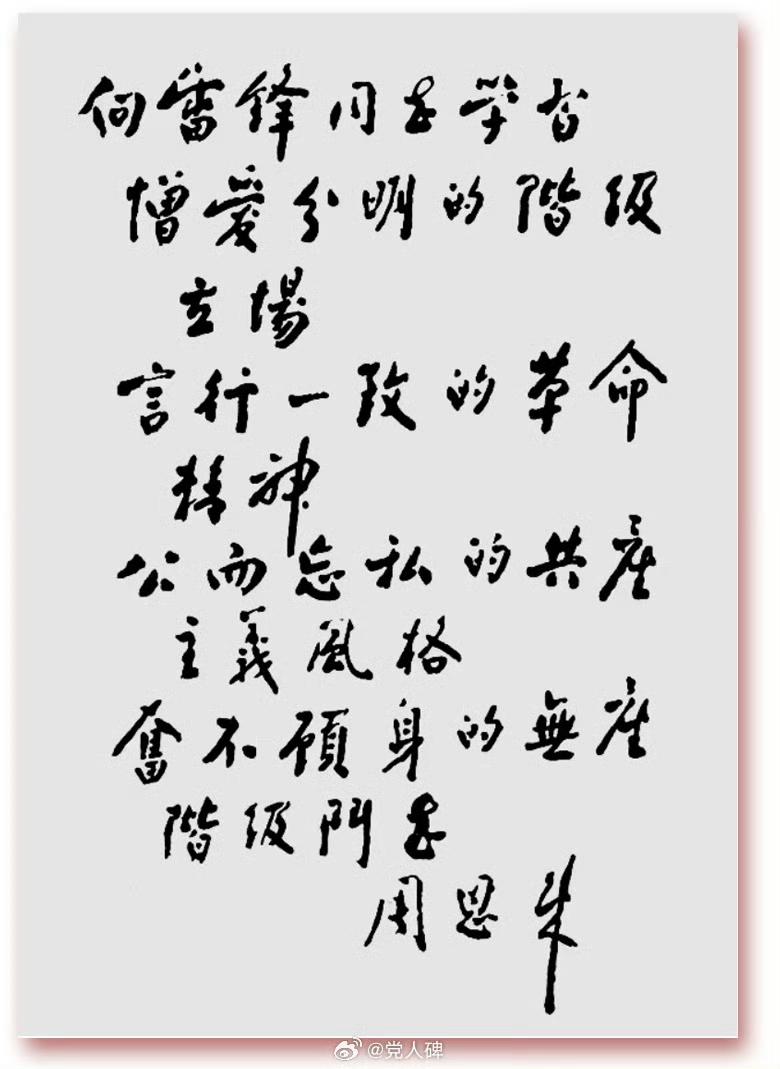 向雷鋒同志学習
憎愛分明的階級
立場
言行一致的革命
精神
公而忘私的共産
主義風格
奮不顧身的無産
階級鬥志
周恩来
@党人碑